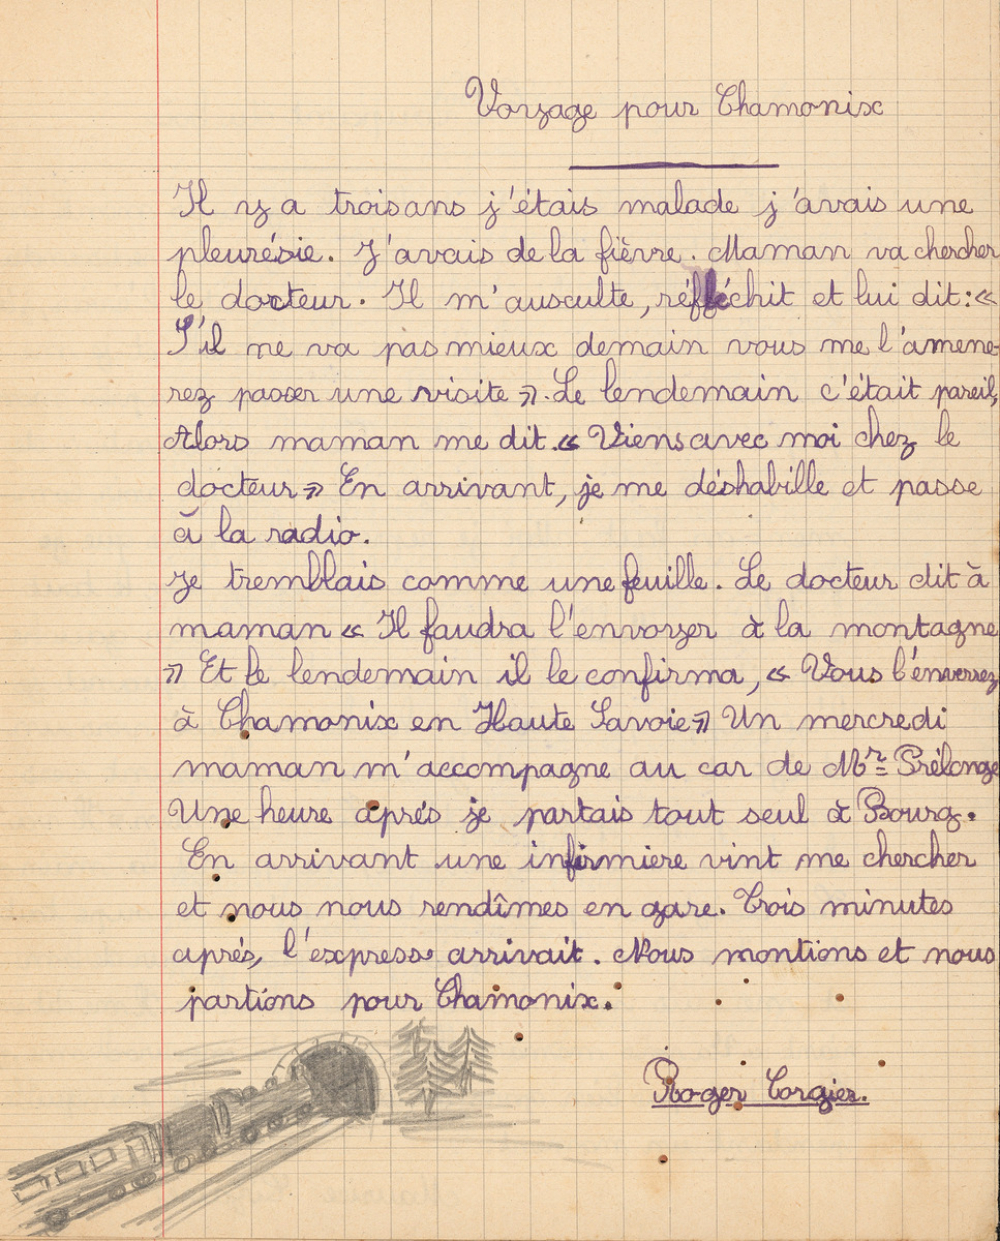 Voyage pour Chamonix
Il y a trois ans j'étais malade j'avais une
pleurésie. J'avais de la fièvre. Maman va chercher
le docteur. Il m'ausculte, réfléchit et lui dit: «
S'il ne va pas mieux demain vous me l'amene-
rez passer une visite ». Le lendemain c'était pareil,
Alors maman me dit. « Viens avec moi chez le
docteur » En arrivant, je me déshabille et passe
à la radio.
Je tremblais comme une feuille. Le docteur dit à
maman « Il faudra l'envoyer à la montagne
» Et le lendemain il le confirma, « Vous l'énverrez
à Chamonix en Haute Savoie » Un mercredi
maman m'accompagne au car de Mr Prélonge
Une heure après je partais tout seul à Bourg.
En arrivant une infirmiere vint me chercher
et nous nous rendîmes en gare. Trois minutes
aprés, l'express arrivait. Nous montions et nous
partions pour Chamonix.
Roger Corgier.